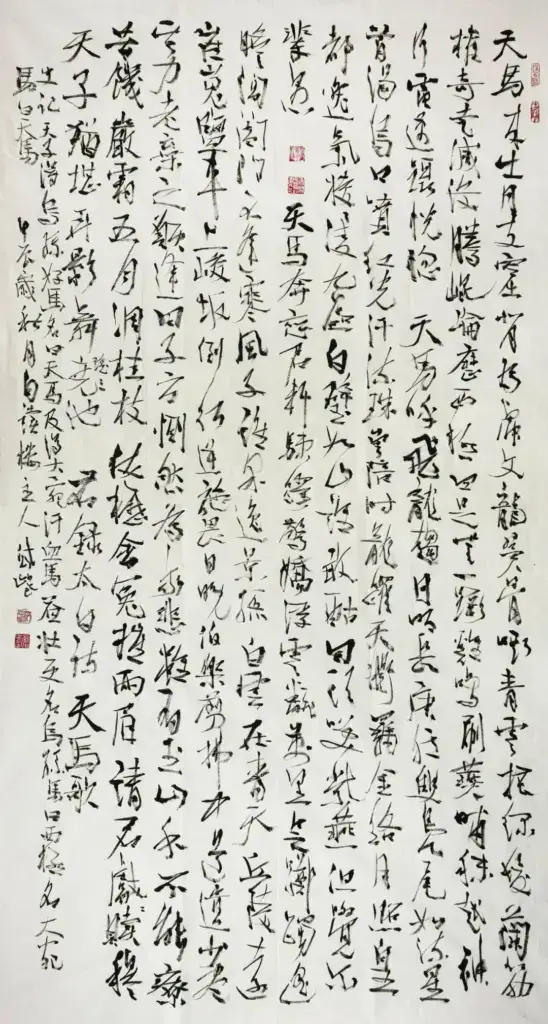 天馬来出月支窟背为虎文龍翼骨嘶青雲振绿发蘭筋
權奇走滅没騰崐崘歷西極四足无一蹶鷄鳴刷燕晡秣越神
行電邁蹑恍惚天馬呼飛龍趨目明長庚臆雙鳧尾如流星
首渴烏口噴红光汗沟珠曾陪时龍躍天衢羈金絡月照皇
都逸氣棱凌九區白璧如山誰敢酤回头笑紫燕但覺尔
輩愚 天馬奔戀君軒駷躍驚矯浮雲飜万里足躑躅遥
瞻阊阖門不逢寒風子誰采逸景孫白雲在青天丘陵遠
崔嵬鹽車上峻坂倒行逆施畏日晚伯樂剪拂中道遺少盡
其力老棄之願逢田子方惻然為我悲雖有玉山禾不能療
苦饑嚴霜五月凋桂枝伏櫪含冤摧兩眉請君獻贖穆
天子猶堪弄影舞瑶池 右録太白詩 天馬歌
史記天子得烏孫好馬名曰天馬及得大宛汗血馬益壯更名烏孫馬曰西極名大宛
馬曰天馬 甲辰歲秋月白 樓主人